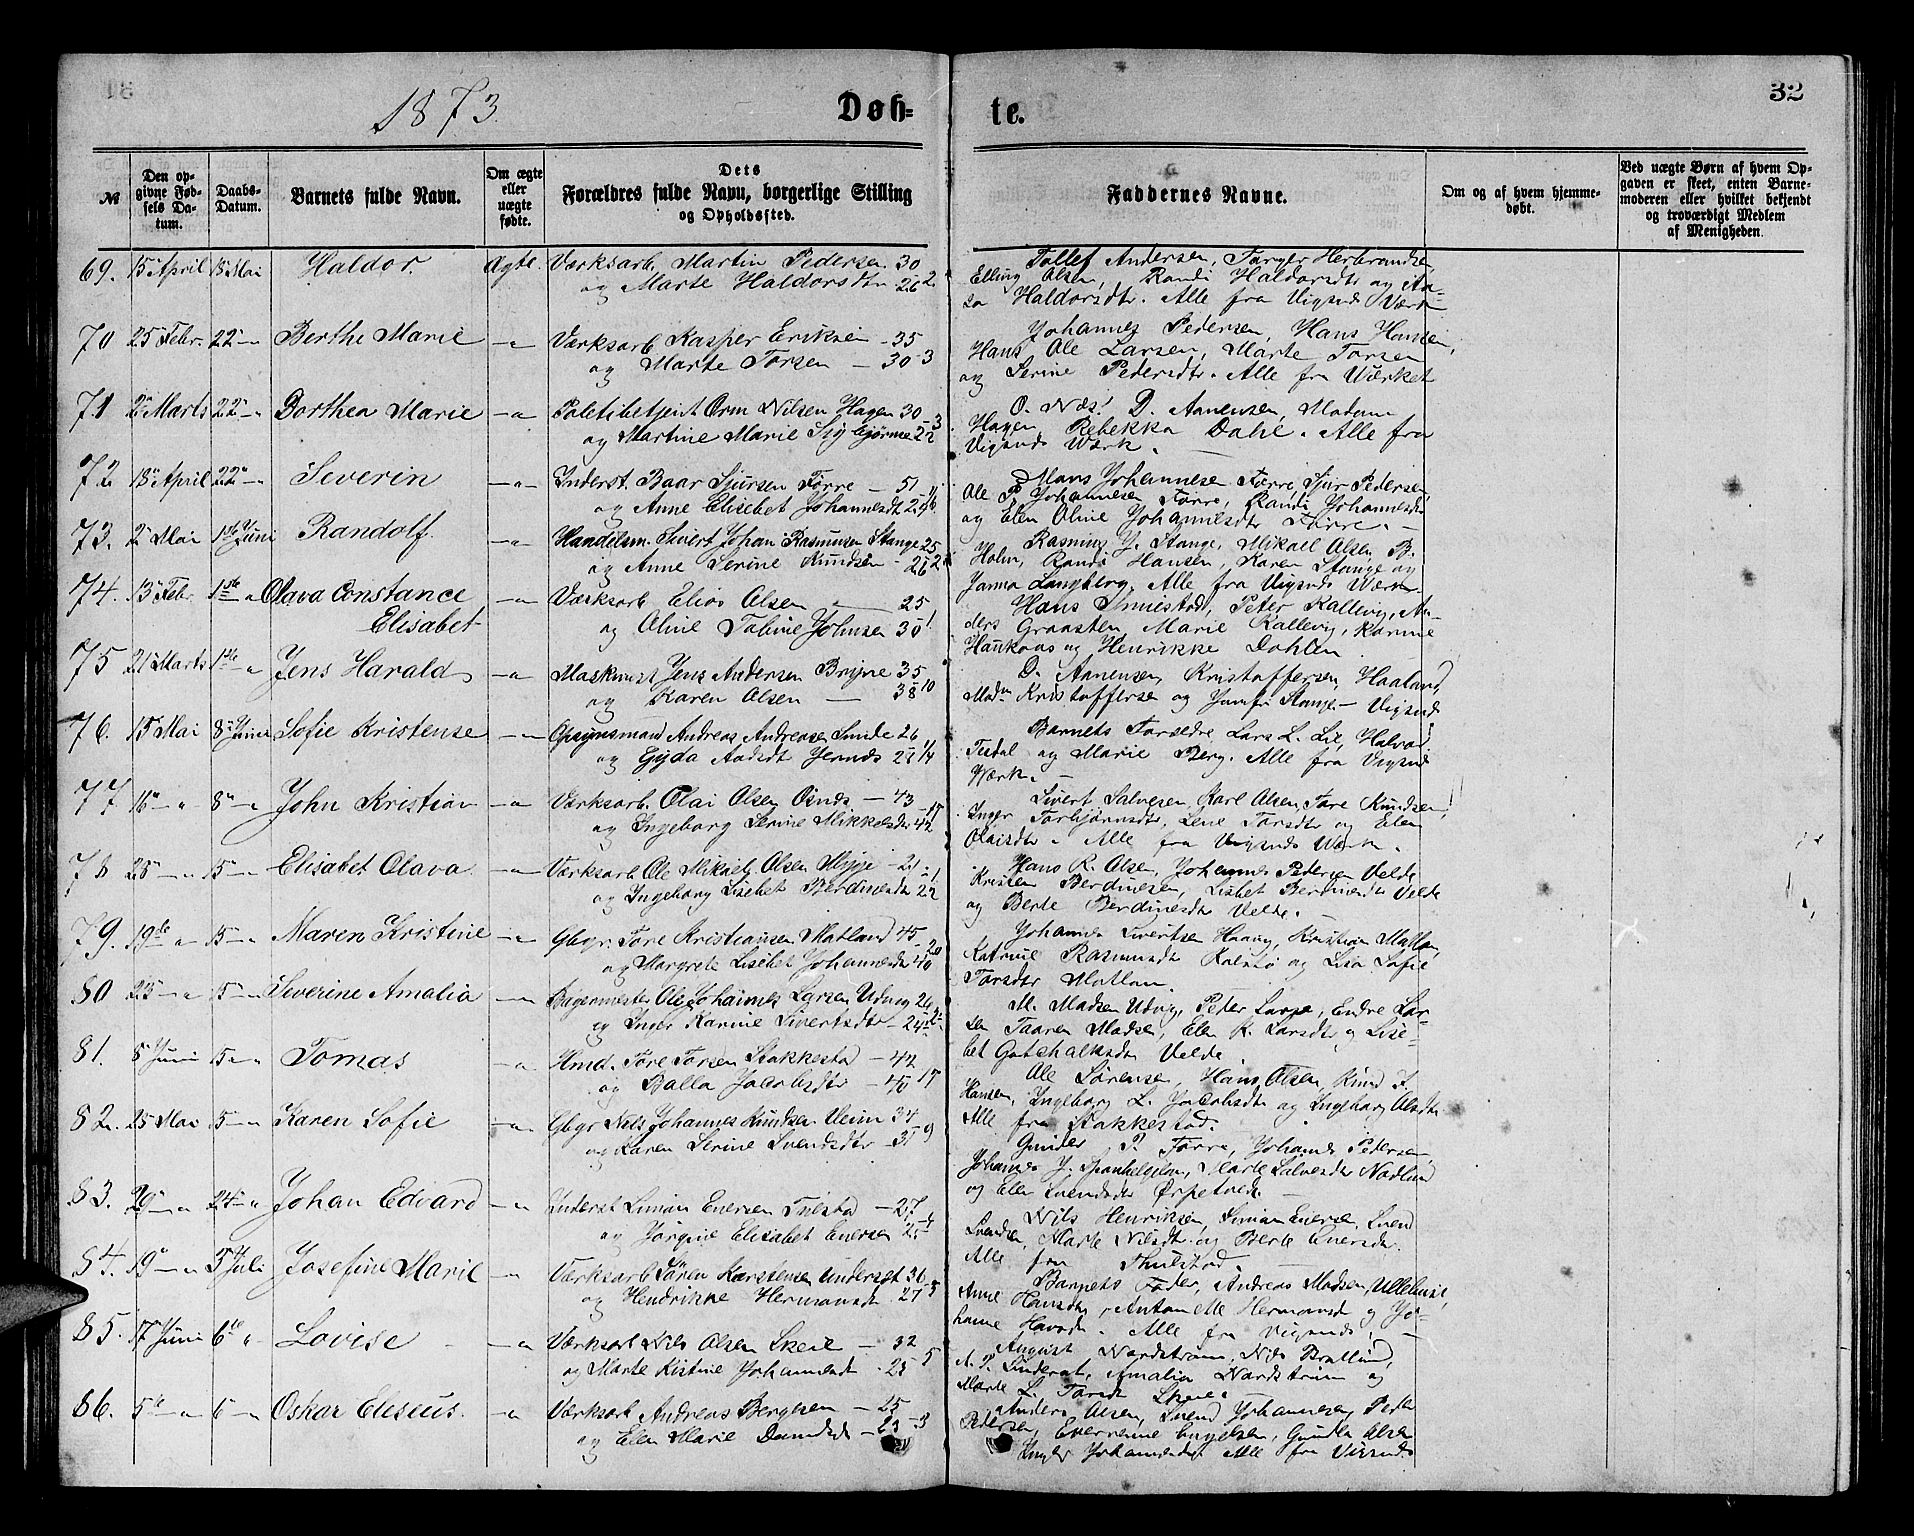 1873.
Døb-
te.
32
№
Den op-
givne Fød-
sels Da-
tum.
Daabs-
Datum.
Barnets fulde Navn.
Om ægte
eller
uægte
fødte.
Dets
Forældres fulde Navn, borgerlige Stilling
og Opholdssted.
Faddernes Navne.
Om og af hvem hjemme-
døbt.
Ved uægte Børn af hvem Op-
gaven er skeet, enten Barne-
moderen eller hvilket bekjendt
og troværdigt Medlem
af Menigheden.
69. 15 April 18 Mai Haldor. Ægte. Værksarb. Martin Pedersen 30
og Marte Haldorsdtr 26 2
Tollef Andersen, Torger Herbrandsen,
Elling Olsen, Randi Haldorsdtr og Aa-
sa Haldorsdtr. Alle fra Vigsnæs Værk
70 25 Febr. 22 Berthe Marie Værksarb. Kasper Eriksen - 35
og Marte Torsen - 30-3
Johannes Pedersen, Hans Hansen,
Hans Ole Larsen, Marte Torsen
og Serine Pedersdtr. Alle fra Værket
71 2 Marts 22 Dorthea Marie Politibetjent Orm Nilsen Hagen 30
og Martine Marie Sigbjørnse 22 3
O. Næs. D. Aanensen, Madam
Hagen, Rebekka Dahl. Alle fra
Vigsnæs Værk.
72 18 April 22 Severin Inderst. Baar Sjursen Førre - 51
og Anne Elisebet Johannesdtr
Mons Johannesen Førre, Sjur Pedersen,
Ole P. Johannesen Førre, Randi Johannesdtr
og Elen Oline Johannesdtr Førre.
73. 2 Mai 1ste Juni Randolf. Handelsm. Sivert Johan Rasmusen Stange 25
og Anne Serine Knudsen - 26 2
Rasmus J. Stange, Mikael Olsen, B.
Holm, Randi Hansen, Karen Stange og
Langberg. Alle fra Vigsnæs Værk.
74. 13 Febr. 1ste Olava Constance Værksarb Elias Olsen 25
Elisabet og Oline Tobine Johnsen 30 1
Hans Peter Kallevig, An-
ders Graasten Marie Kallevig, Karine
Haukaas og Henrikke Dahlen
75 21 Marts 1ste Jens Harald Maskinist Jens Andersen Bryne 35
og Karen Olsen 38 10
D. Aanensen, Kristoffersen, Haaland,
Madm Kristoffersen og Jomfr Stange - Vigsnæs
76. 15 Mai 8 Juni Sofie Kristense Opsynsmand Andreas Andreasen Sunde 26
og Gyda Aadsdt 28
Barnets Forældre Lars L. Lie, Halvor
Tesdal og Marie Berg. Alle fra Vigsnæs
Værk.
77 16 8 John Kristian Værksarb. Olai Olsen Osnæs - 43
og Ingeborg Serine Mikkelsdtr 42
Sivert Salvesen, Karl Olsen, Tore Knudsen,
Inger Torbjørnsdtr, Lene Torsdtr og Elen
Olaisdtr. Alle fra Vigsnæs Værk.
78 28 15 Elisabet Olava. Værksarb Ole Mikael Olsen Myge - 21
og Ingeborg Lisebet Berdinesdtr 22 1
Hans R. Olsen, Johannes Pedersen Velde
Kristen Berdinesen, Lisbet Berdinesdtr Velde
og Berte Berdinesdtr Velde.
79. 19de 15 Maren Kristine Gbgr. Tore Kristiansen Matland 45
og Margrete Lisebet Johannesdtr 40 20
Johannes Sivertsen Haavig, Kristian Matlan,
Katrine Rasmusdt Kalstø og Lisa Sofie
Torsdtr Matlan.
80 23 15 Severine Amalia Bøgermester Ole Johannes Larsen Udvig 26
og Inger Karine Sivertsdtr - 24
M. Madsen Udvig, Peder Endre Lar-
sen Taaren Madsen, Elen K. Larsdtr og Lise-
bet Gotskalksdtr Velde.
81. 8 Juni 15 Tomas Hmd. Tore Torsen Stokkestad - 42
og Balla Jacobsdtr - 40 17
Ole Sørensen, Hans Olsen, Knud F.
Hansen, Ingeborg L. Jacobsdtr og Ingeborg Olsdtr
Alle fra Stokkestad.
82. 25 Mai 15 Karen Sofie Gbgr Nils Johannes Knudsen Veim 34
og Karen Serine Svendsdtr - 31 9
Gunder P. Førre, Johannes Pedersen,
Johannes J. Marte Salvesdtr Nodland
og Elen Svendsdtr Ørpetvedt.
83. 29 24 Johan Edvard Inderst Simon Enersen Tuestad - 27
og Jørgine Elisabet Enersen
Nils Henriksen, Simon Enersen, Svend
Svendsen, Marte Nilsdtr og Berte Enersdtr.
Alle fra Thuestad.
84. 19 5 Juli Josefine Marie Værksarb Sören Karstensen Underset 30
og Hendrikke Hermansdt. 27 5
Barnets Fader, Andreas Madsen,
Anne Hansdtr, Antonette Hermansd og Jo-
hanne Alle fra Vigsnæs.
85. 17 Juni 6te Lovise Værksarb Nils Olsen Skeie - 32
og Marte Kistine Johannesdt. 28 5
August Nordstrøm, Nils
Amalia Nordstrøm og
Marte L. Torsdt Skeie.
86. 5te 6 Oskar Eliseus. Værksarb Andreas Bergesen - 25
og Elen Marie - 23 3
Anders Olsen, Svend Johannesen, Peder
Pedersen, Gunda Olsen
Inger Johannesdtr Alle fra Vigsnæs